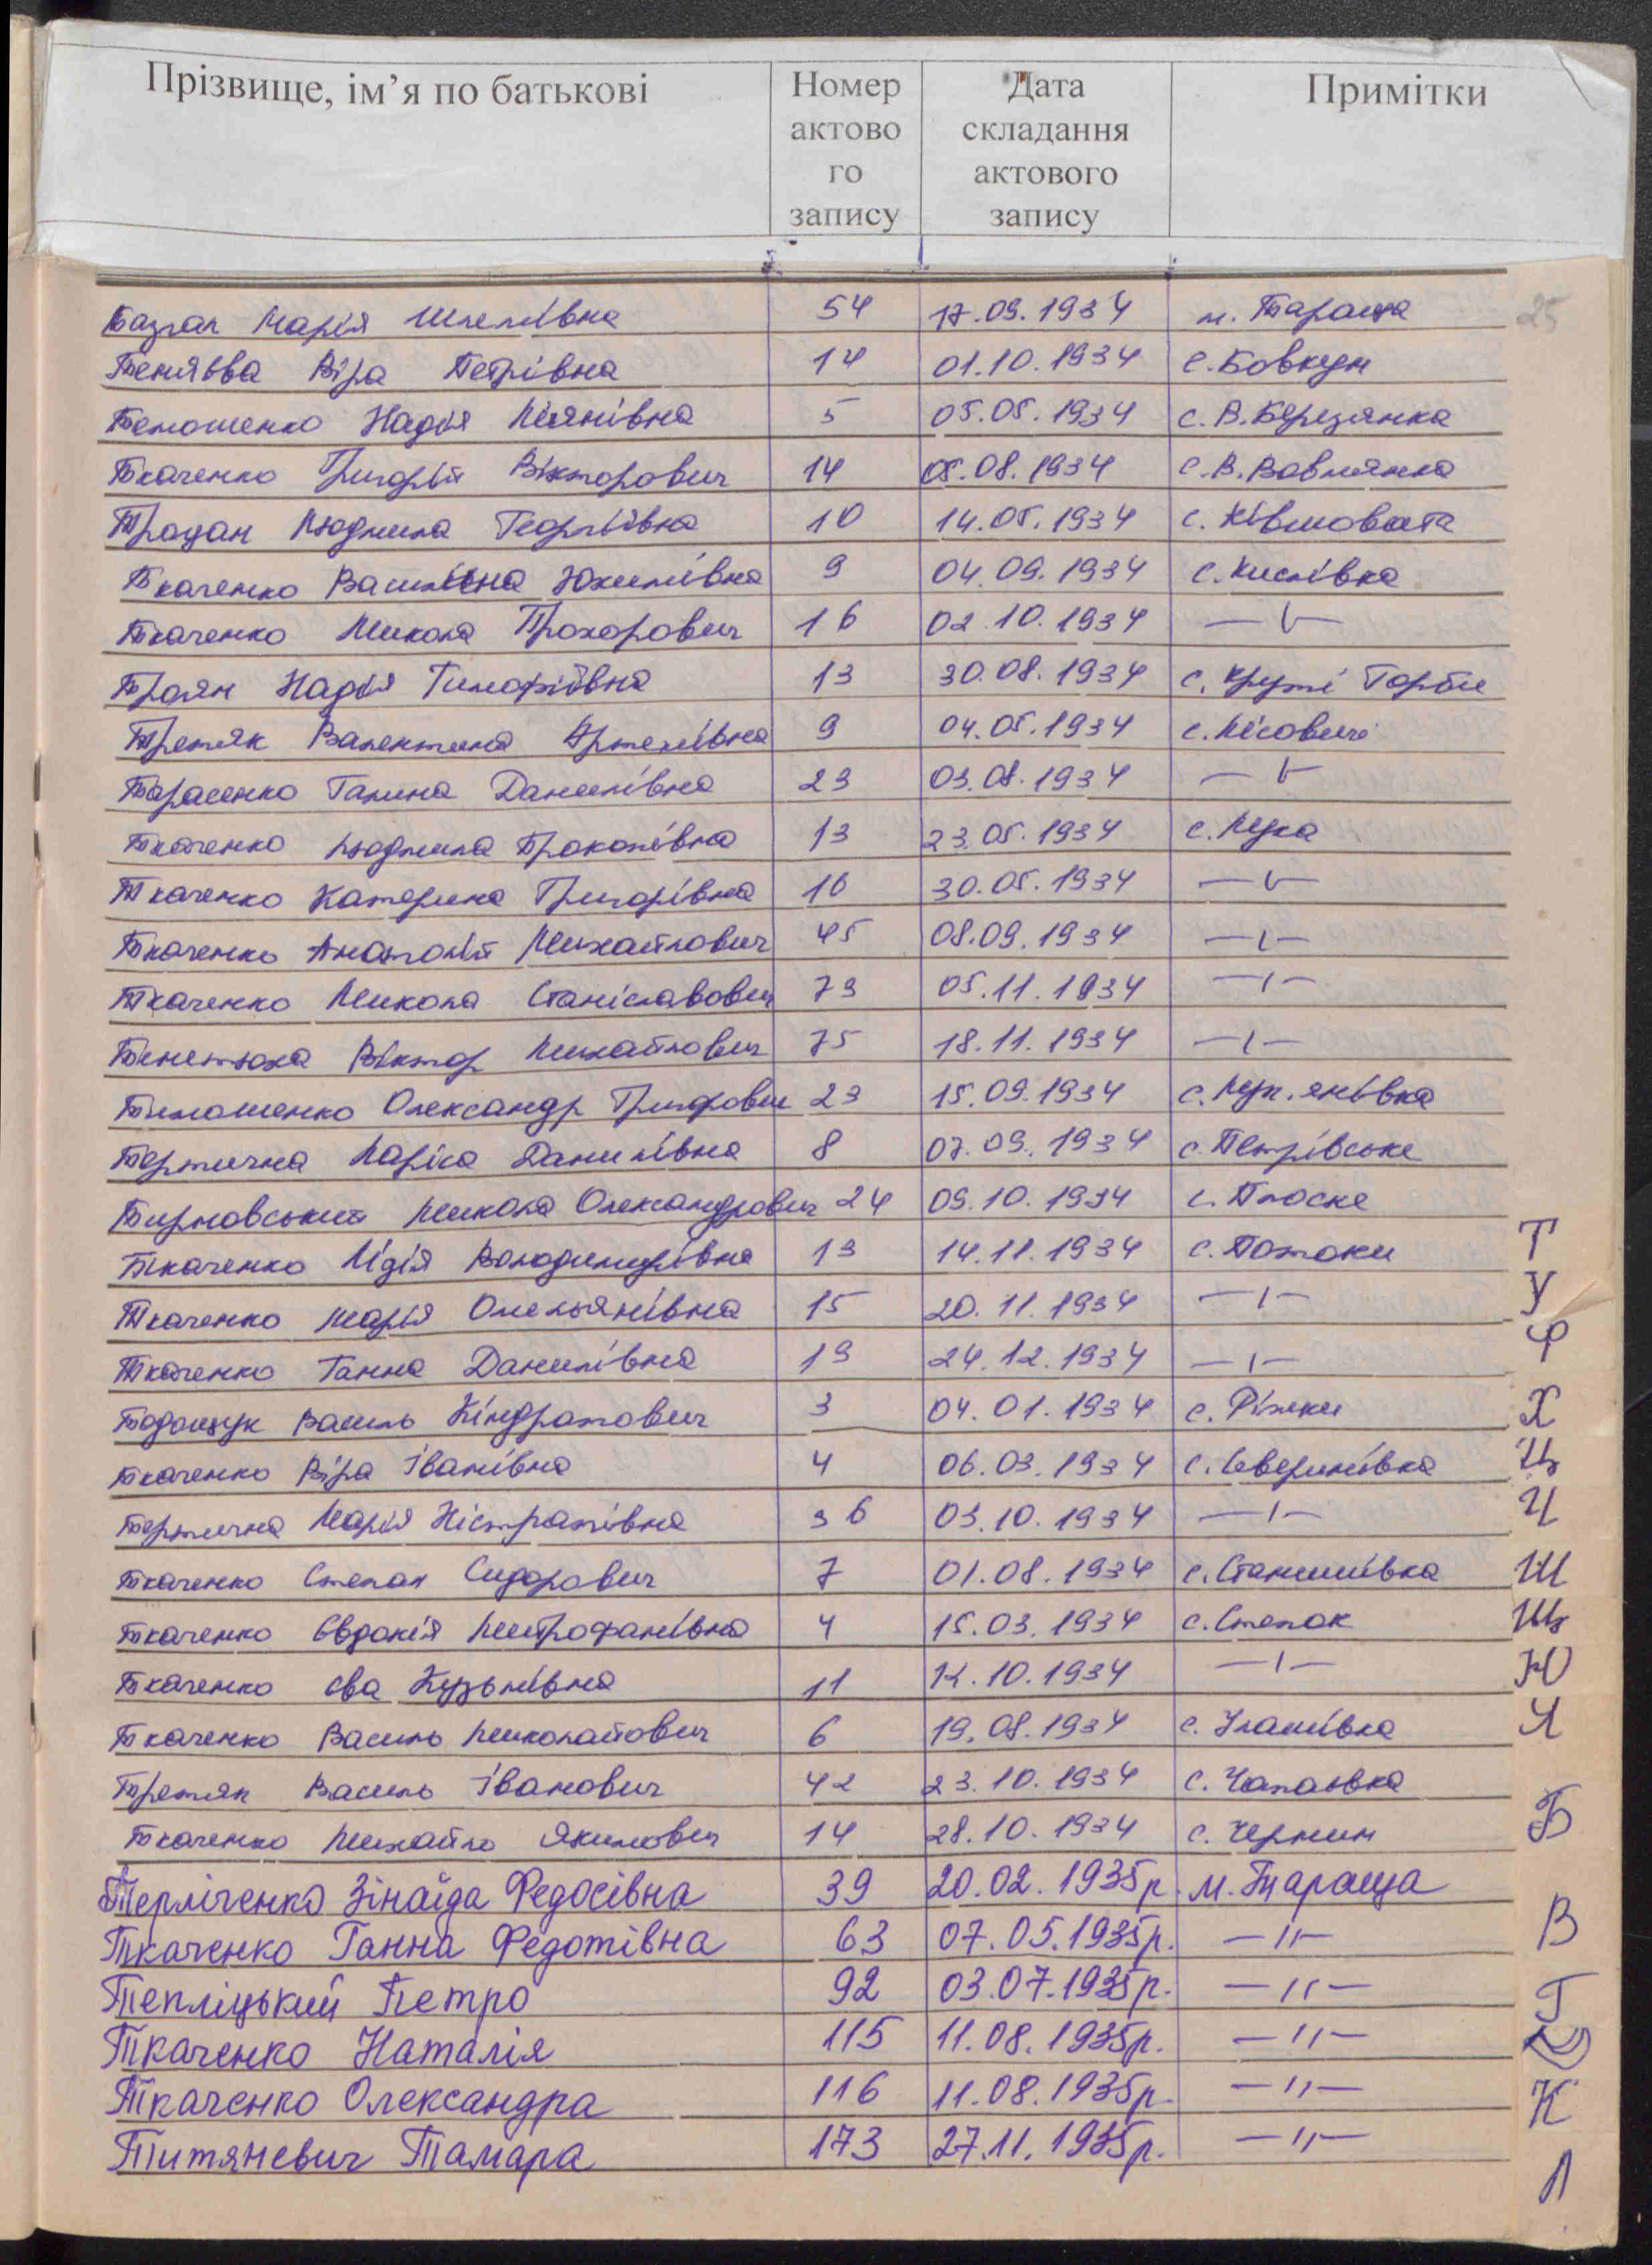 Прізвище, ім’я по батькові Номер актово го запису Дата складання актового запису Примітки
25
Марія 54 17.09.1934 м. Тараща
Віра Петрівна 14 01.10.1934 с. Бовкун
Надія 5 05.05.1934 с. В. Березянка
Ткаченко Григорій Вікторович 14 05.08.1934 с. В. Вовнянка
Троцан Людмила Георгіївна 10 14.05.1934 с. Ківшовата
Ткаченко Василина Юхимівна 9 04.09.1934 с. Кислівка
Ткаченко Микола Прохорович 16 02.10.1934 — v —
Троян Надія Тимофіївна 13 30.08.1934 с. Круті Горби
Третяк Валентина Артемівна 9 04.05.1934 с. Лісовичі
Тарасенко Галина Данилівна 23 03.08.1934 — v
Ткаченко Людмила Прокопівна 13 23.05.1934 с. Лука
Ткаченко Катерина Григорівна 16 30.05.1934 — v —
Ткаченко Анатолій Михайлович 45 08.09.1934 — ı —
Ткаченко Микола Станіславович 73 05.11.1934 — ı —
Тенетюха Віктор Михайлович 75 18.11.1934 — ı —
Тимошенко Олександр Григорович 23 15.09.1934 с. Лук.янівка
Тертична Лариса Данилівна 8 07.09.1934 с. Петрівське
Тирновський Микола Олександрович 24 09.10.1934 с. Плоске
Ткаченко Лідія Володимирівна 13 14.11.1934 с. Потоки
Ткаченко Марія Омелянівна 15 20.11.1934 — ı —
Ткаченко Ганна Данилівна 19 24.12.1934 — ı —
Тодощук Василь Кіндратович 3 04.01.1934 с. Ріжки
Ткаченко Віра Іванівна 4 06.03.1934 с. Северинівка
Тертична Марія Кістратівна 36 03.10.1934 — ı —
Ткаченко Степан Сидорович 7 01.08.1934 с. Станишівка
Ткаченко Євдокія Митрофанівна 4 15.03.1934 с. Степок
Ткаченко Єва Кузьмівна 11 12.10.1934 — ı —
Ткаченко Василь Миколайович 6 19.08.1934 с. Улашівка
Третяк Василь Іванович 42 23.10.1934 с. Чапаєвка
Ткаченко Михайло Якимович 14 28.10.1934 с. Чернин
Терліченко Зінаїда Федосівна 39 20.02.1935р. м. Тараща
Ткаченко Ганна Федотівна 63 07.05.1935р. — ıı —
Тепліцький Петро 92 03.07.1935р. — ıı —
Ткаченко Наталія 115 11.08.1935р. — ıı —
Ткаченко Олександра 116 11.08.1935р. — ıı —
Титяневич Тамара 173 27.11.1935р. — ıı —
Т
У
Ф
Х
Ц
Ч
Ш
Щ
Ю
Я
Б
В
Г
К
Л